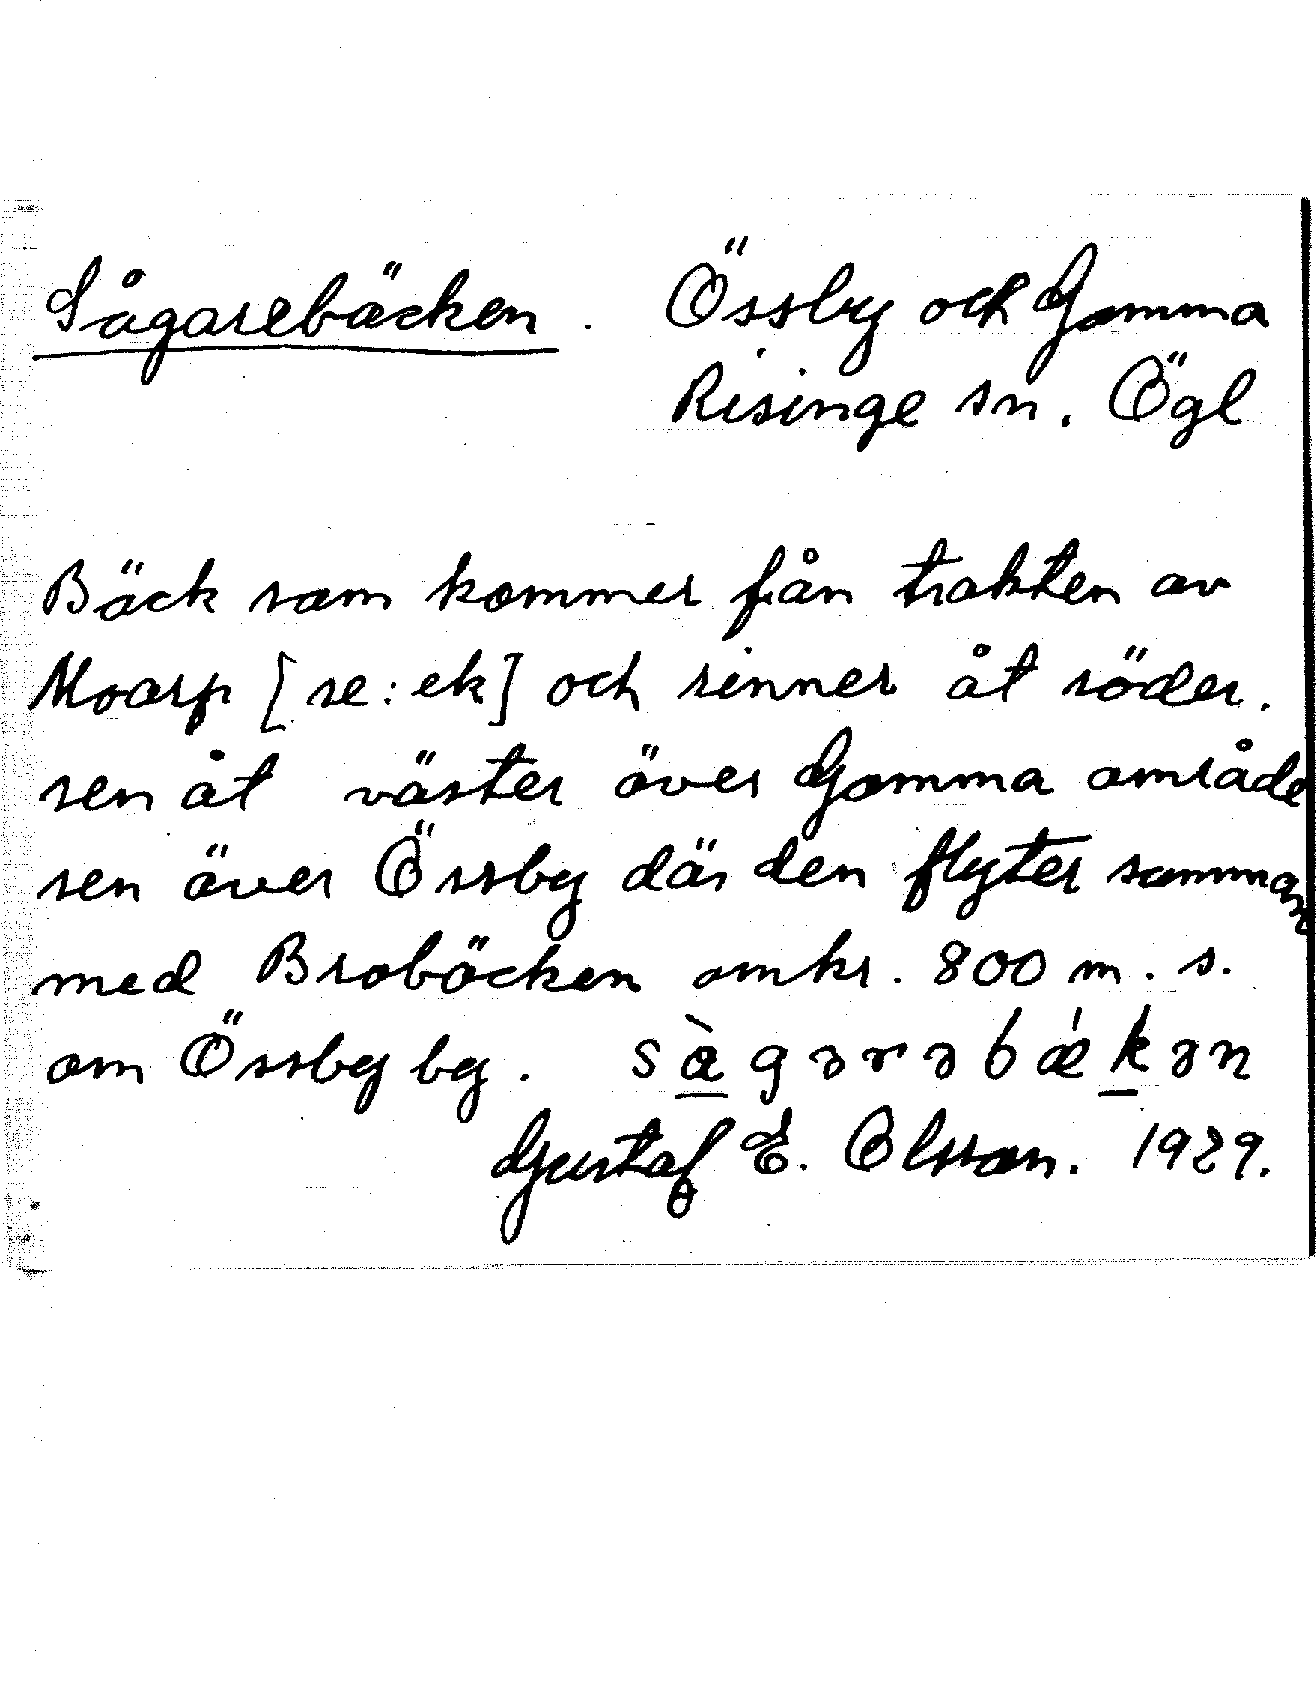 Sågarebäcken. Össby och Gomma
Risinge sn. Ögl
Bäck som kommer från trakten av
Moarp [se: ek] och rinner åt söder.
sen åt väster över Gomma område
sen över Össby där den flyter samman
med Brobäcken omkr. 800 m. s.
om Össby by. sàgərəbǽkən
Gustaf E. Olsson. 1929.